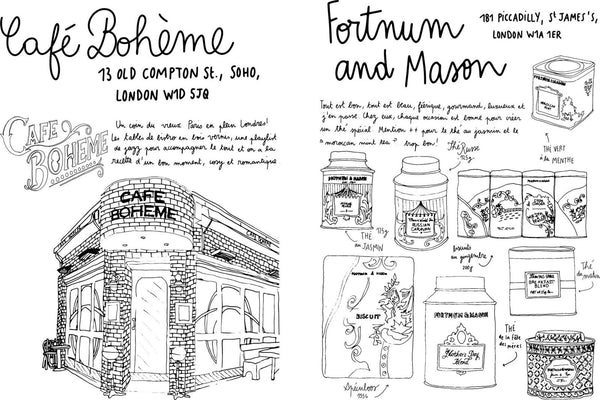 Café Bohème
13 OLD COMPTON St., SOHO,
LONDON W1D 5JQ
CAFE
BOHEME
Un coin du vieux Paris en plein Londres!
Les tables de bistro en bois vernis, une playlist
de jazz pour accompagner le tout et on a la
recette d'un bon moment, cosy et romantique
CAFE
BOHEME
Fortnum
and Mason
181 PICCADILLY, St JAMES'S,
LONDON W1A 1ER
Tout est bon, tout est beau, féerique, gourmand, luxueux et
j'en passe. Chez eux, chaque occasion est bonne pour créer
un thé spécial. Mention ++ pour le thé au jasmin et le
"moroccan mint tea" trop bon!
FORTNUM & MASON
THÉ VERT
à la MENTHE
Thé Russe
125g
FORTNUM & MASON
THÉ
au JASMIN
125g
RUSSIAN
CARAVAN
biscuits
au gingembre
200g
BREAKFAST
BLEND
Thé
du matin
FORTNUM & MASON
BISCUIT
Spéculoos
FORTNUM & MASON
Mothers Day
Blend
THÉ
de la fête
des mères